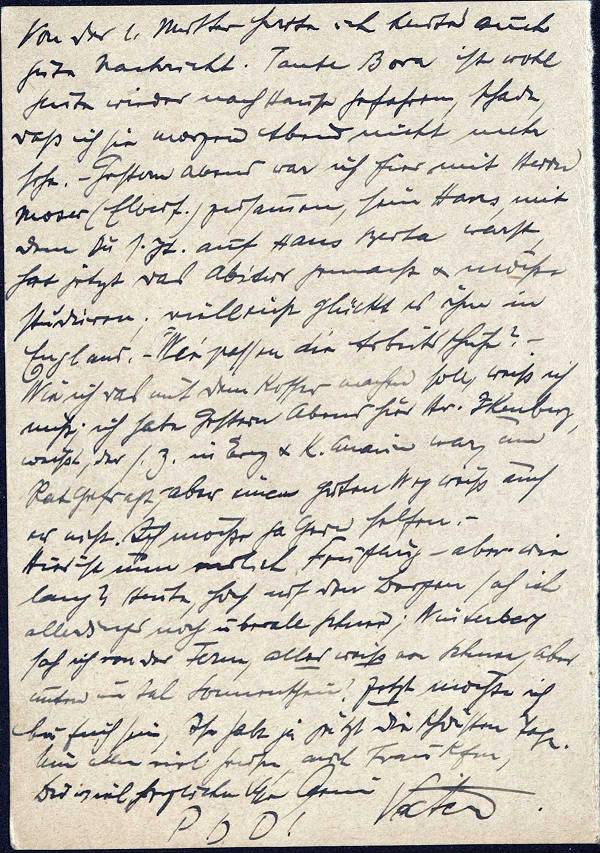 Von der l. Mutter hatte ich heute auch
gute Nachricht. Tante Bora ist wohl
heute wieder nach Hause gefahren, schade,
daß ich sie morgen Abend nicht mehr
sehe. - Gestern Abend war ich hier mit Herrn
Moser (Elberf.) zusammen, sein Hans, mit
dem Du s. Zt. auf Hans warst,
hat jetzt das Abitur gemacht & möchte
studieren, vielleicht glückt es ihm in
England. - Wie passen die Arbeitsschuhe? -
Wie ich das mit dem Koffer machen soll, weiß ich
nicht; ich habe gestern Abend hier Hr.
weißt, der s. Z. in & K. war, um
Rat gefragt, aber einen guten Weg weiß auch
er nicht. Ich möchte ja gern helfen. -
Hier ist nun endlich Frühling - aber wie
lang? Heute, hoch auf den Bergen sah ich
allerdings noch überall Schnee; Winterberg
sah ich von der Ferne, alles weiß von Schnee, aber
unten im Tal Sonnenschein! Jetzt möchte ich
bei Euch sein, Ihr habt ja jetzt die schönsten Tage.
viel
viel herzliche Grüße
Vater.